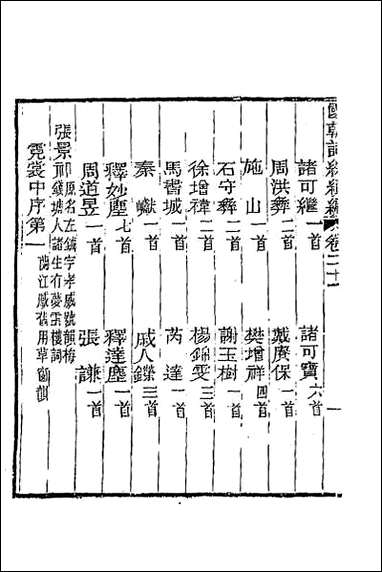 國朝詞綜續編 卷二十一
諸可繼一首 諸可寶六首
周洪彝二首 戴廣保一首
施山一首 樊增祥四首
石守彝二首 謝玉樹一首
徐增禕二首 楊錦雯三首
馬書城一首 芮達一首
秦嶽一首 戚人鏶三首
釋妙塵七首 釋達塵一首
周道昱一首 張謙一首
張景祁 原名左鉞字孝威號韻梅
錢塘人諸生有蘩雲樓詞
霓裳中序第一 蘭江感舊用草窗韻